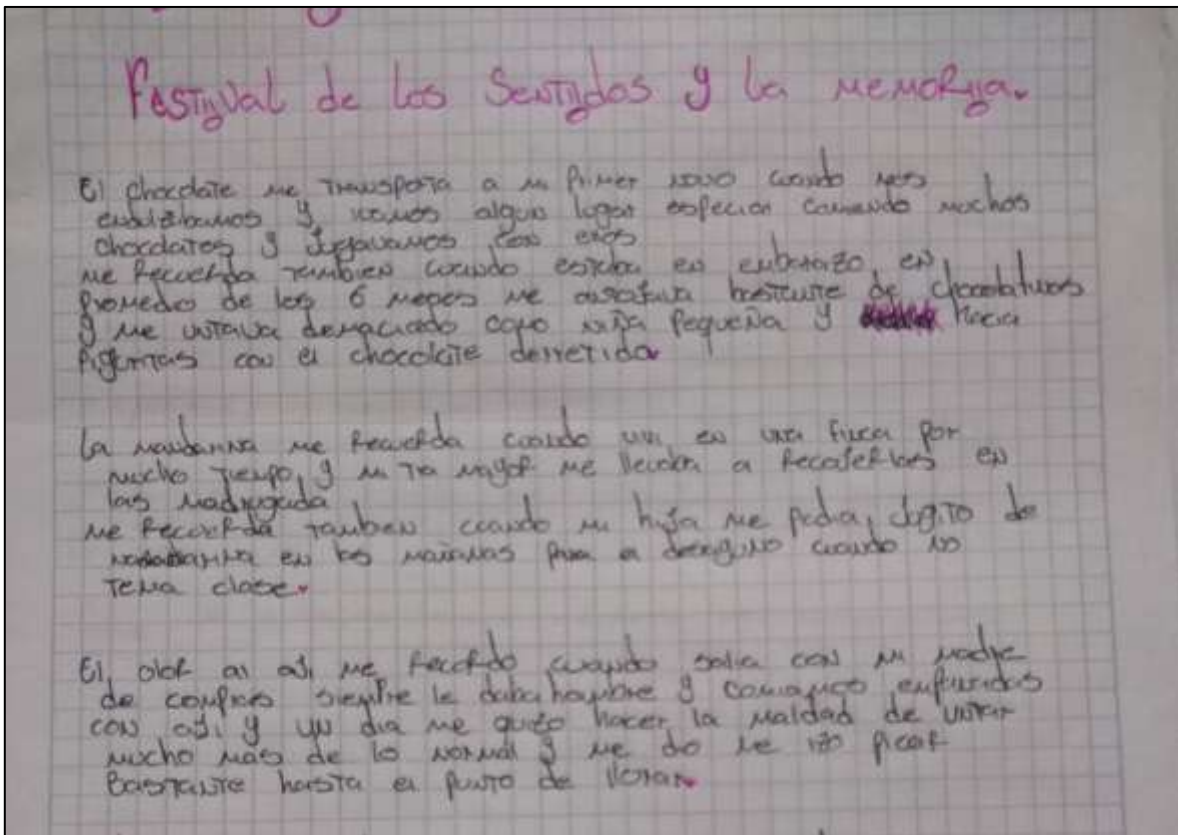 Festival de los Sentidos y la memoria.
El chocolate me transporta a mi primer novio cuando nos
y ivamos algun lugar especial comiendo muchos
chocolates y jugavamos con ellos
me recuerda tambien cuando estaba en embarazo, en
promedio de los 6 meses me bastante de chocolatinas
y me untava demaciado como niña pequeña y hacia
figuritas con el chocolate derretido.
La mandarina me recuerda cuando vivi en una finca por
mucho tiempo, y mi tia mayor me llevaba a recogerlas en
las madrugada
me recuerda tambien cuando mi hija me pedia, jugito de
en las mañanas para el desayuno cuando no
tenia clase.
El olor al aji me recordo cuando salia con mi madre
de compras siempre le daba hambre y comiamos empanadas
con aji y un dia me quizo hacer la maldad de untar
mucho mas de lo normal y me do me izo picar
Bastante hasta el punto de llorar.